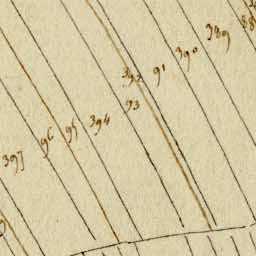 389
390
91
392
93
394
95
96
397